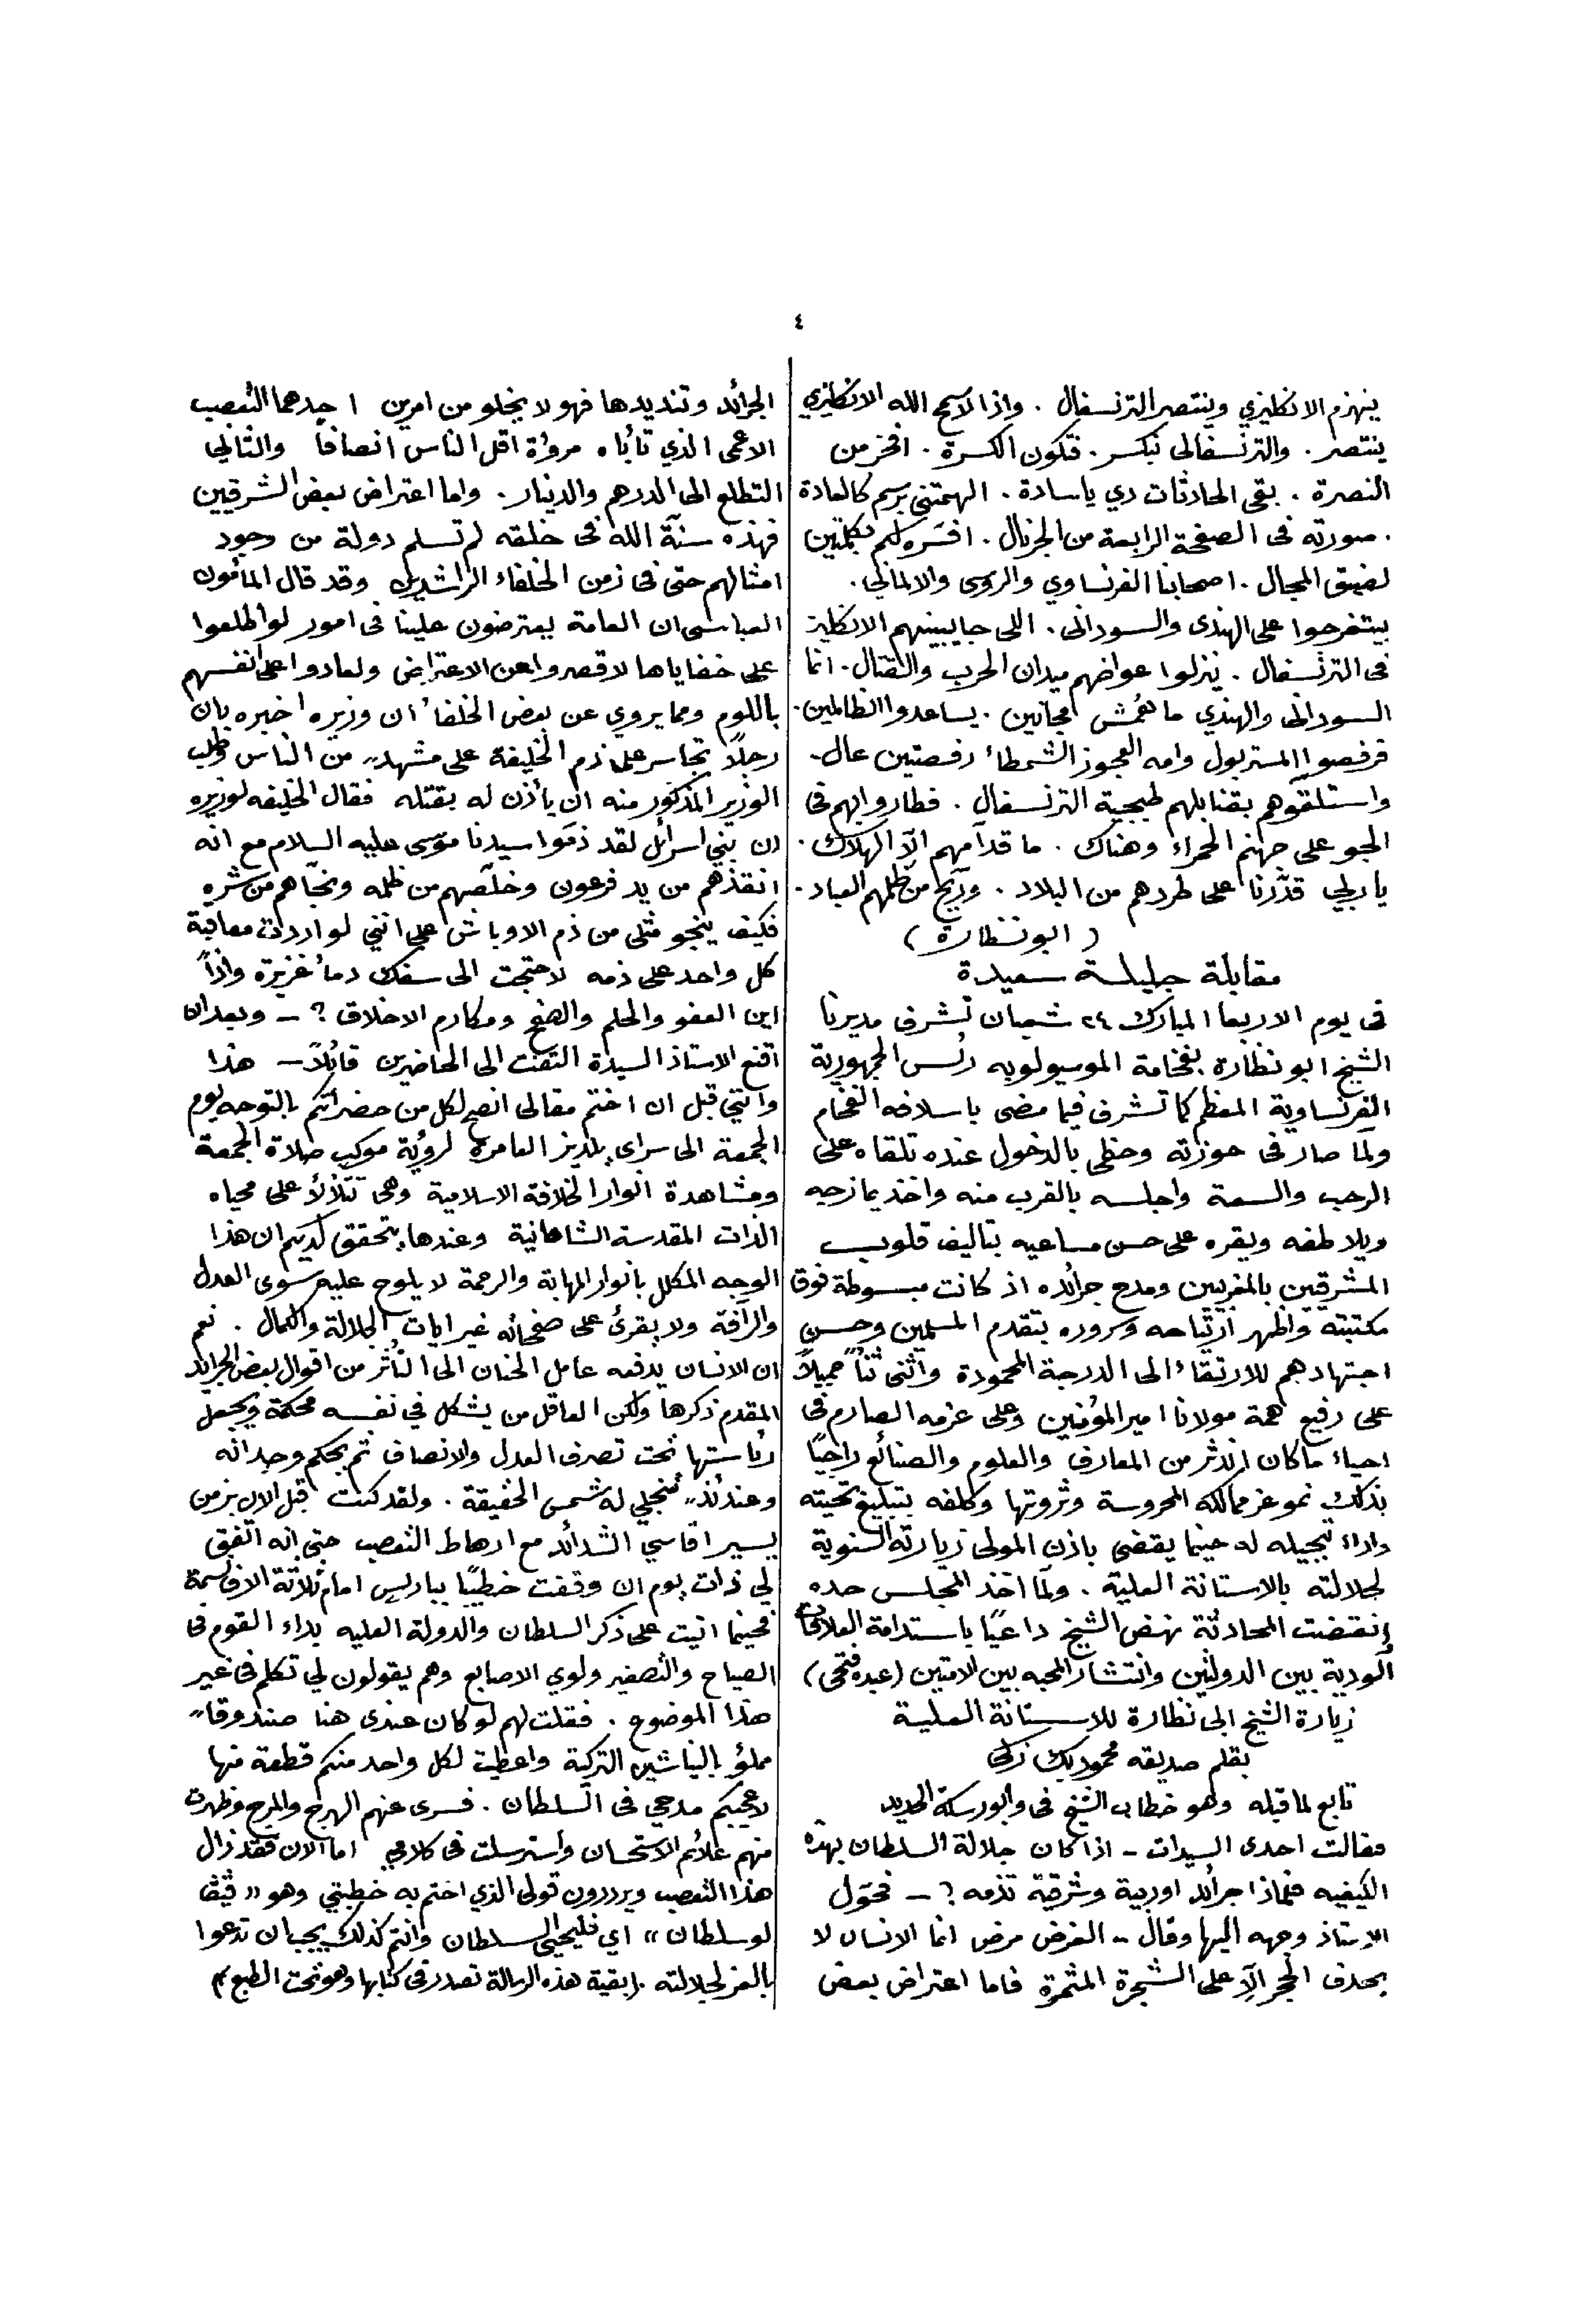 ٤
ينهزم الانكليزي وينتصر الترنسفال . واذا لا سمح الله الانكليزي
ينتصر . والترنسفالى نكسر . فتكون الكسرة . افخر من
النصرة . بقى الحادثات دي ياسادة . الهمتنى برسم كالعادة
. صورته فى الصفحة الرابعة من الجرنال . افسره لكم بكلمتين
لضيق المجال . اصحابنا الفرنساوي والروسى والالمانى .
بيتفرحوا على الهندى والسودانى . اللى جايبينهم الانكليز
فى الترنسفال . ينزلوا عواضهم ميدان الحرب والقتال . انما
السودانى والهندي ما همش مجانين . يساعدوا الظالمين .
فرفصوا المستر بول وامه العجوز الشمطاء رفصتين عال .
واستلقوهم بقنابلهم طبجية الترنسفال . فطاروا بهم فى
الجو على جهنم الحمراء وهناك . ما قدامهم الّا الهلاك .
يا ربي قدّرنا على طردهم من البلاد . وريّح من ظلمهم العباد .
( ابو نظارة )
مقابلة جليلة سعيدة
فى يوم الاربعا المبارك ٢٤ شعبان تشرف مديرنا
الشيخ ابو نظارة بفخامة الموسيو لوبه رئس الجمهورية
الفرنساوية المعظم كما تشرف فيما مضى باسلافه الفخام
ولمّا صار فى حوزته وحظى بالدخول عنده تلقاه على
الرحب والسعة واجلسه بالقرب منه واخذ يمازحه
ويلاطفه ويقره على حسن مساعيه بتاليف قلوب
المشرقين بالمغربيين ومدح جرائده اذ كانت مبسوطة فوق
مكتبته واظهر ارتياحه وسروره بتقدم المسلمين وحسن
اجتهادهم للارتقاء الى الدرجة المحمودة واثنى ثناً جميلاً
على رفيع همة مولانا امير المؤمنين وعلى عزمه الصارم فى
احياء ما كان اندثر من المعارف والعلوم والصنائع راجيًا
بذلك نمو عز ممالكه المحروسة وثروتها وكلفه بتبليغ تحيته
واداء تبجيله له حينما يقضى باذن المولى زيارته السنوية
لجلالته بالاستانة العلية . ولمّا اخذ المجلس حده
وانقضت المحادثة نهض الشيخ داعيًا باستدامة العلاقات
الودية بين الدولتين وانتشار المحبه بين الامتين (عبده فتحى)
زيارة الشيخ ابى نظارة للاستانة العلية
بقلم صديقه محمود بك زكى
تابع لما قبله وهو خطاب الشيخ فى وابور سكة الحديد
فقالت احدى السيدات – اذا كان جلالة السلطان بهذه
الكيفيه فلماذا جرائد اوربية وشرقية تذمه ؟ – فحوّل
الاستاذ وجهه اليها وقال – الغرض مرض انما الانسان لا
يحدف الحجر الّا على الشجرة المثمرة فاما اعتراض بعض
الجرائد وتنديدها فهو لا يخلو من امرين احدهما التعصب
الاعمى الذي تأباه مروؤة اقل الناس انصافاً والثانى
التطلع الى الدرهم والدينار . واما اعتراض بعض الشرقيين
فهذه سنّة الله فى خلقه لم تسلم دولة من وجود
امثالهم حتى فى زمن الخلفاء الراشدين وقد قال المأمون
العباسى ان العامة يعترضون علينا فى امور لو اطلعوا
على خفاياها لاقصروا عن الاعتراض ولعادوا على انفسهم
باللوم ومما يروي عن بعض الخلفاء ان وزيره اخبره بان
رجلاً تجاسر على ذم الخليفة على مشهد من الناس وطلب
الوزير المذكور منه ان يأذن له بقتله فقال الخليفه لوزيره
ان بني اسرائل لقد ذمّوا سيدنا موسى عليه السلام مع انه
انقذهم من يد فرعون وخلّصهم من ظلمه ونجّاهم من شره
فكيف ينجو مثلى من ذم الاوباش على انني لو اردت معاقبة
كل واحد على ذمه لاحتجت الى سفك دماً غزيرة واذاً
اين العفو والحلم والصفح ومكارم الاخلاق ؟ – وبعد ان
اقنع الاستاذ السيدة التفت الى الحاضرين قائلاً – هذا
وانني قبل ان اختم مقالى انصح لكل من حضراتكم بالتوجه يوم
الجمعة الى سراى يلديز العامرة لرؤية موكب صلاة الجمعة
ومشاهدة انوار الخلافة الاسلامية وهى تتلألأ على محياه
الذات المقدسة الشاهانية وعندها يتحقق لديكم ان هذا
الوجه المكلل بانوار المهابة والرحمة لا يلوح عليه سوى العدل
والرآفة ولا يقرئ على صفحاته غير ايات الجلالة والكمال . نعم
ان الانسان يدفعه عامل الحنان الى التأثر من اقوال بعض الجرائد
المقدم ذكرها ولكن العاقل من يشكل في نفسه محكمة ويجعل
رئاستها تحت تصرف العدل والانصاف ثم يحكم وجدانه
وعندئذ تنجلي له شمس الحقيقة . ولقد كنت قبل الان بزمن
يسير اقاسي الشدائد مع ارهاط التعصب حتى انه اتفق
لي ذات يوم ان وقفت خطيبًا بباريس امام ثلاثة الاف نسمة
فحينما اتيت على ذكر السلطان والدولة العليه بداء القوم فى
الصياح والتصفير ولوي الاصابع وهم يقولون لي تكلم فى غير
هذا الموضوع . فقلت لهم لو كان عندى هنا صندوقاً
مملؤ بالنياشين التركية واعطيت لكل واحد منكم قطعة منها
لاعجبكم مدحي فى السلطان . فسرى عنهم الهرج والمرج وظهرت
منهم علائم الاستحسان واسترسلت فى كلامي اما الان فقد زال
هذا التعصب ويرددون قولى الذي اختم به خطبتي وهو « ڤيڤ
لو سلطان » اي فليحيى السلطان وانتم كذلك يجب ان تدعوا
بالعز لجلالته . (بقية هذه الرسالة تصدر فى كتابها وهو تحت الطبع